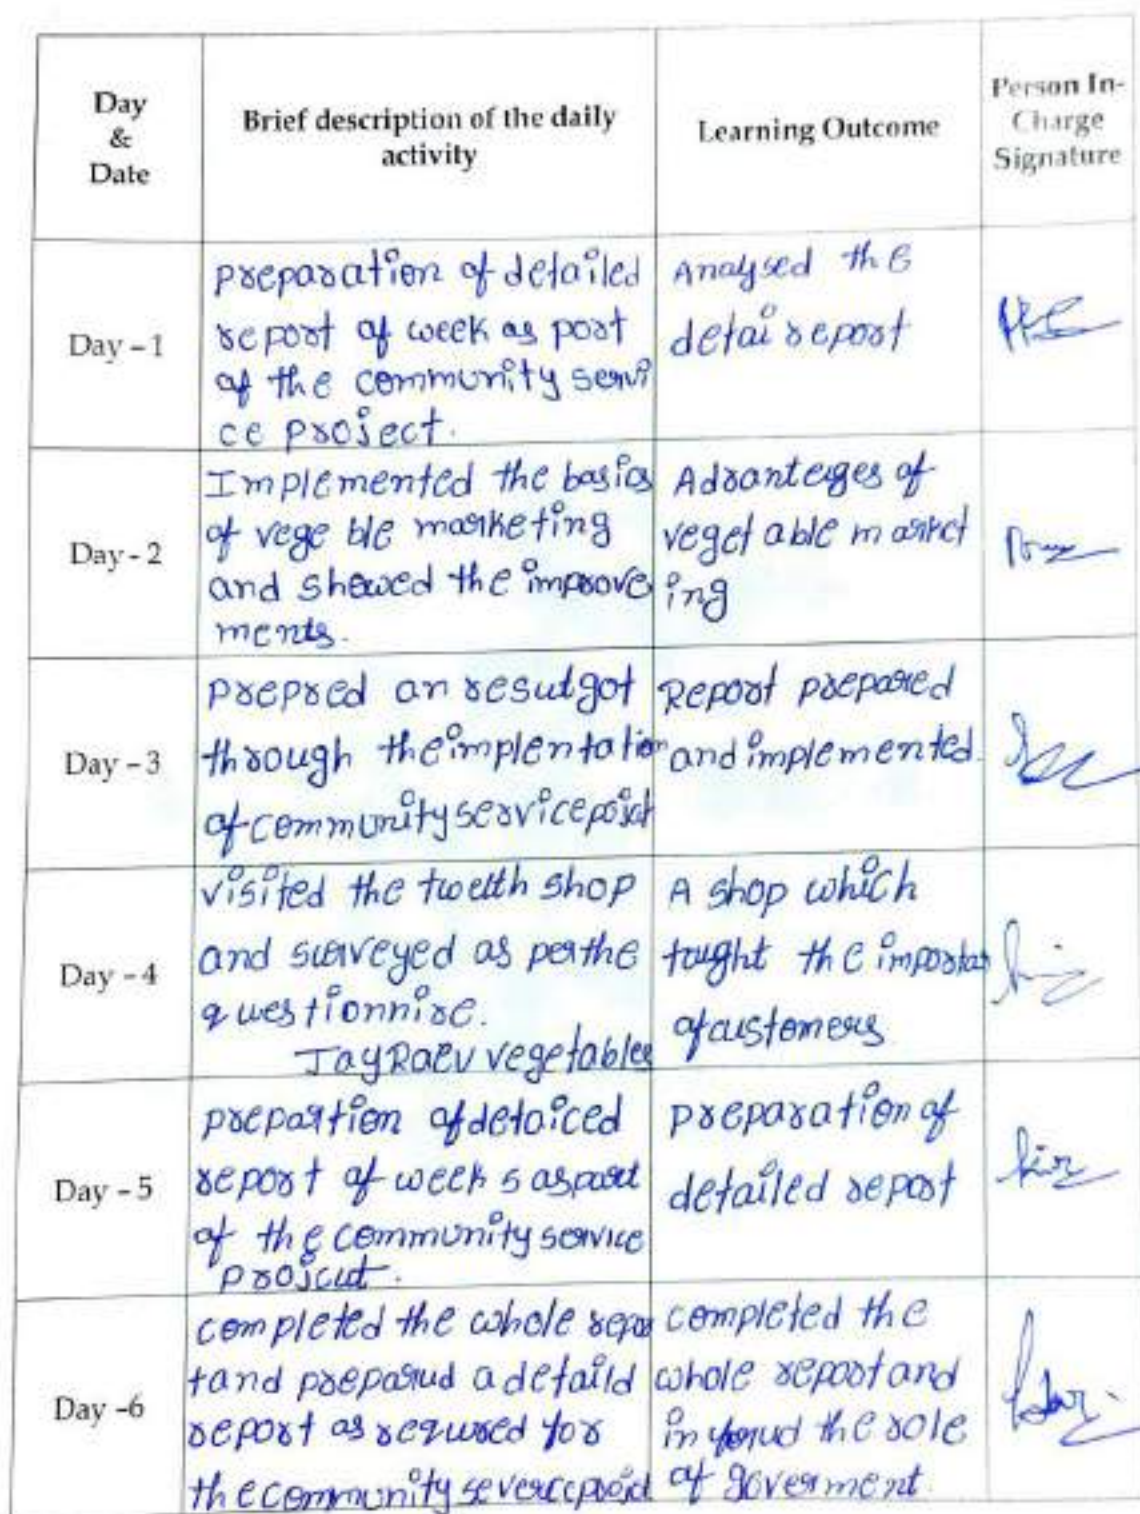 Day
&
Date
Brief description of the daily
activity
Learning Outcome
Person In-
Charge
Signature
Day - 1
preparation of detailed
report of week as part
of the community servi
ce project.
Analysed the
detai report
Day - 2
Implemented the basics
of vege ble marketing
and showed the improve
ments.
Advanteges of
veget able market
ing
Day - 3
prepred an resut got
through the implentation
of community service
Report prepared
and implemented.
Day - 4
visited the twelth shop
and surveyed as per the
questionnire.
vegetables
A shop which
taught the importan
of customers
Day - 5
prepartion of detailed
report of week 5 as part
of the community service
project.
preparation of
detailed report
Day -6
completed the whole repor
t and prepared a detaild
report as requred for
the community
completed the
whole report and
the role
of goverment.